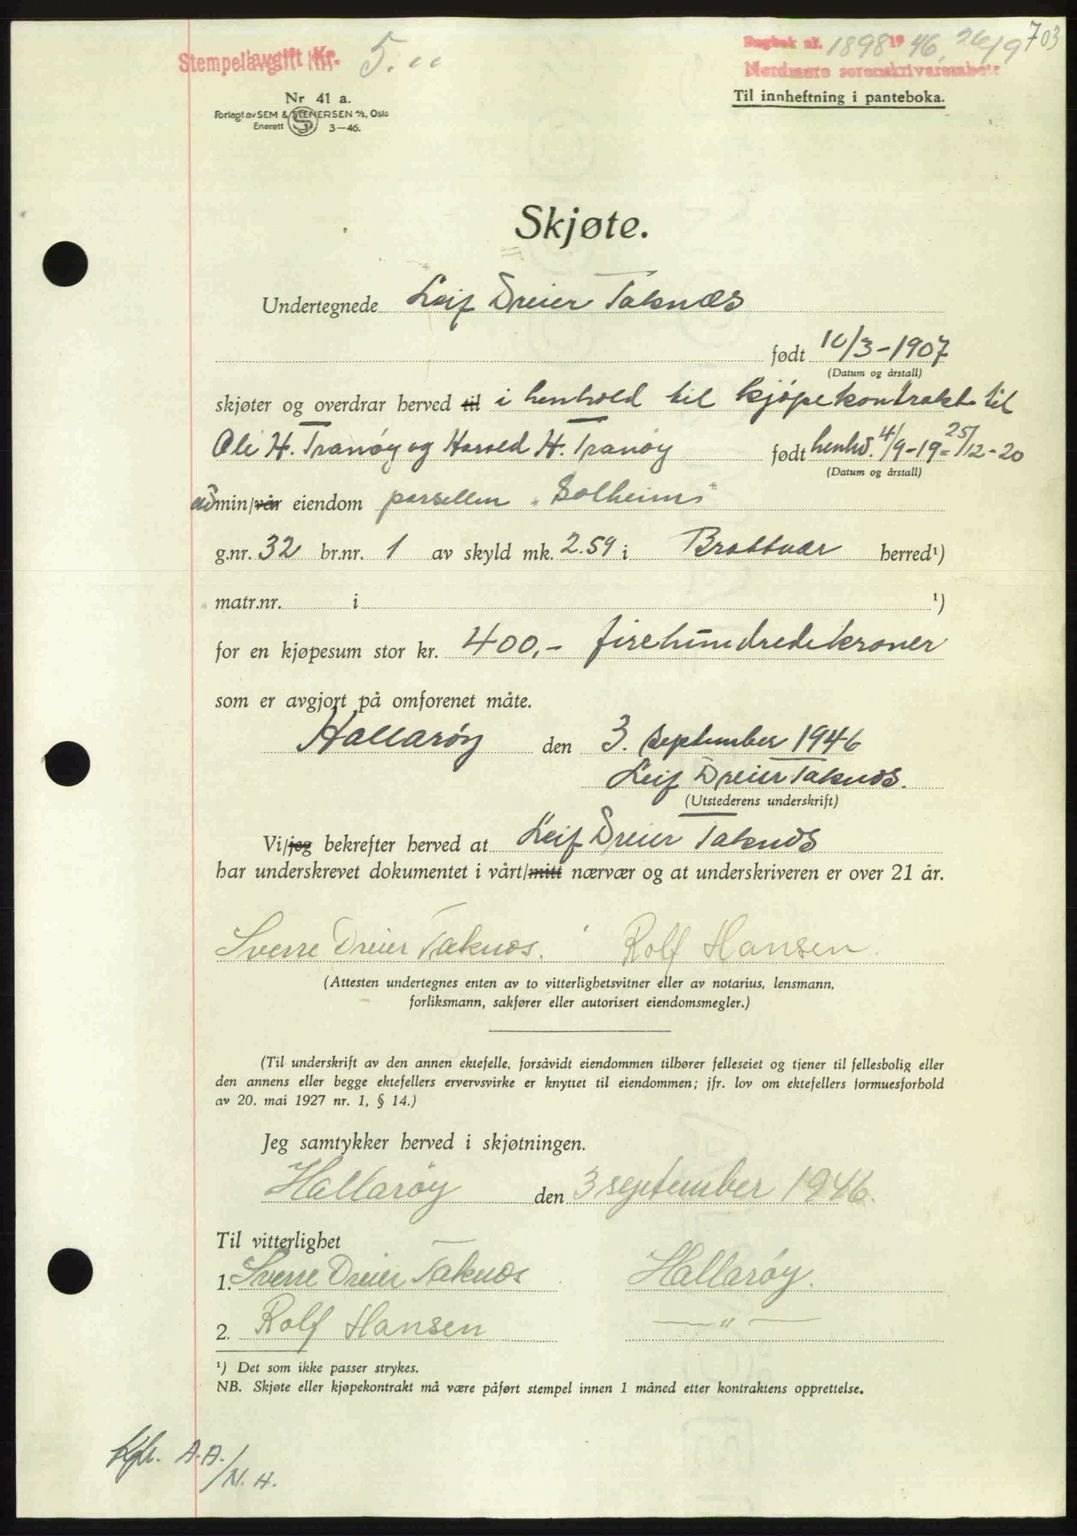 703
Stempelavgift Kr. 5.00
Dagbok nr. 1898 19 46, 26/9
Nordmøre sorenskriverembete
Nr 41 a.
Til innheftning i panteboka.
Forlagt av SEM & STENERSEN A/S, Oslo
Enerett 3-46.
Skjøte.
Undertegnede Leif Dreier Taknæs
født 10/3-1907
(Datum og årstall)
skjøter og overdrar herved til i henhold til kjøpekontrakt til
Ole H. Tranøy og Harald H. Tranøy født henhv. 4/9-19 - 25/12-20
(Datum og årstall)
min/vår eiendom parsellen "Solheim"
g.nr. 32 br.nr. 1 av skyld mk. 2.59 i Brattvær herred¹)
matr.nr. i ¹)
for en kjøpesum stor kr. 400,- firehundredekroner
som er avgjort på omforenet måte.
Hallarøy den 3. september 1946
Leif Dreier Taknæs.
(Utstederens underskrift)
Vi/jeg bekrefter herved at Leif Dreier Taknæs
har underskrevet dokumentet i vårt/mitt nærvær og at underskriveren er over 21 år.
Sverre Dreier Taknæs. Rolf Hansen.
(Attesten undertegnes enten av to vitterlighetsvitner eller av notarius, lensmann,
forliksmann, sakfører eller autorisert eiendomsmegler.)
(Til underskrift av den annen ektefelle, forsåvidt eiendommen tilhører felleseiet og tjener til fellesbolig eller
den annens eller begge ektefellers ervervsvirke er knyttet til eiendommen; jfr. lov om ektefellers formuesforhold
av 20. mai 1927 nr. 1, § 14.)
Jeg samtykker herved i skjøtningen.
Hallarøy den 3 september 1946.
Til vitterlighet
1. Sverre Dreier Taknæs Hallarøy.
2. Rolf Hansen — " —
¹) Det som ikke passer strykes.
NB. Skjøte eller kjøpekontrakt må være påført stempel innen 1 måned etter kontraktens opprettelse.
Kfr. A.A./N.H.